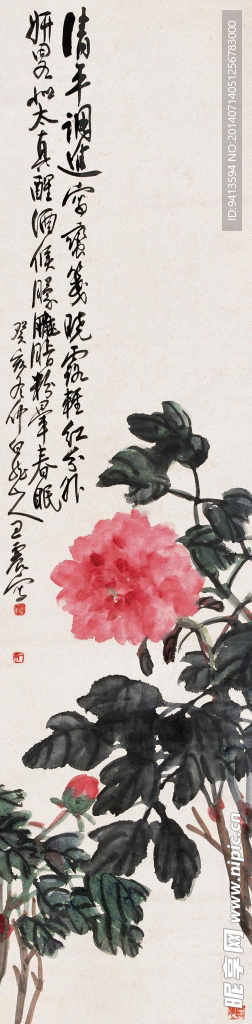 清平调进当褒笺晓露轻红分外
妍略似太真醒酒候朦胧脂粉晕春眠
癸亥冬仲白龙山人王震写
ID:9413594 NO:20140714051256783000
昵享网 www.nipic.cn